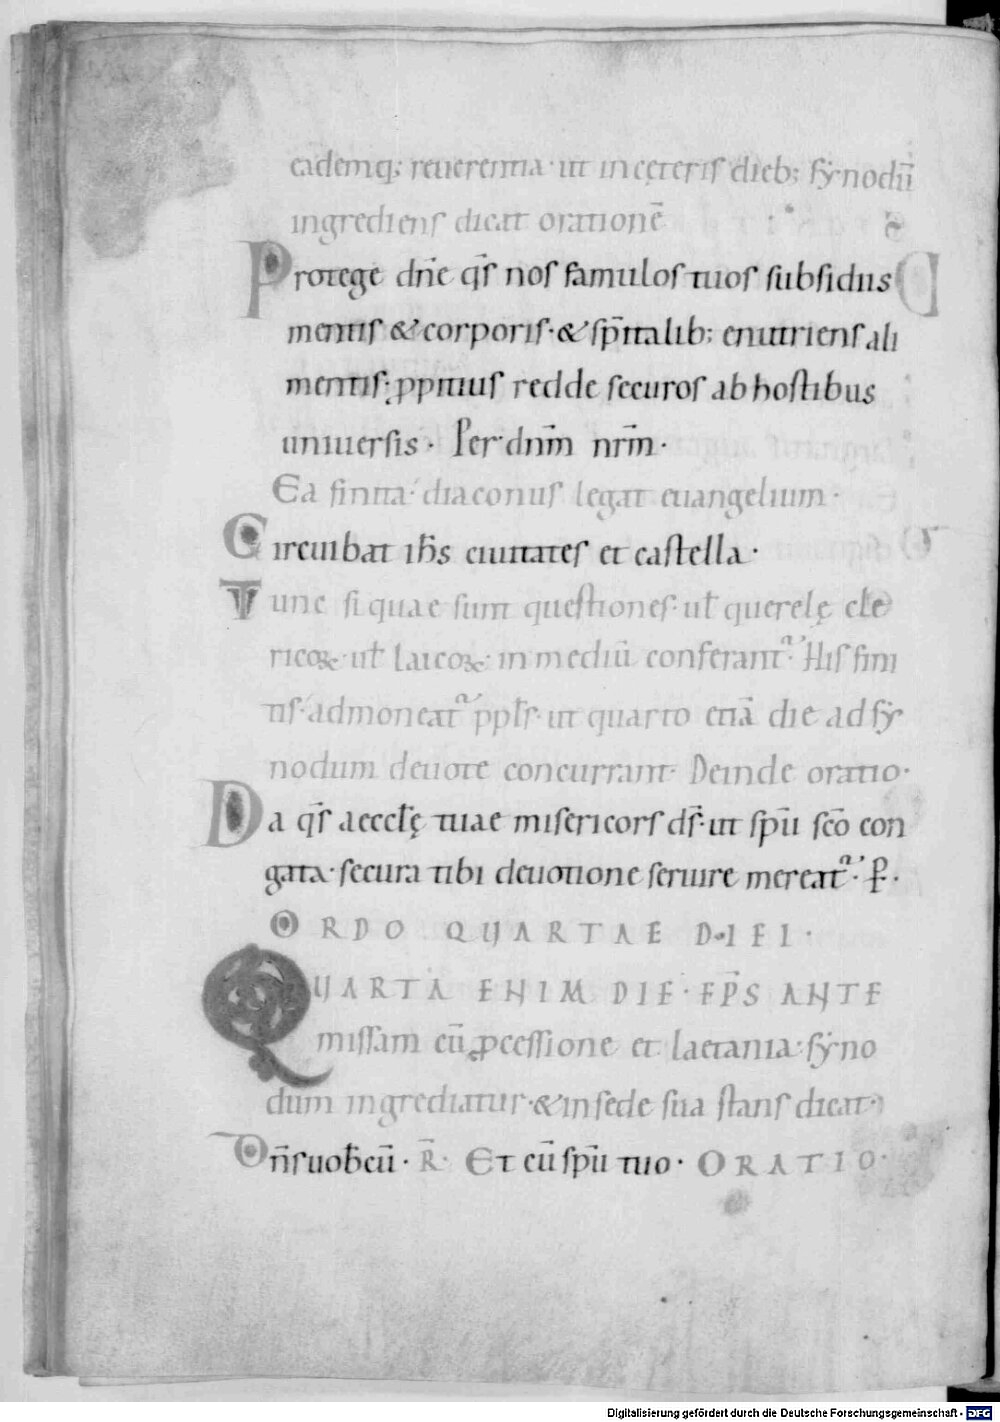 eademq; reuerentia· ut in cęteris dieb; sẏnodū
ingrediens dicat orationē
Protege dn̄e qs̄ nos famulos tuos subsidiis
mentis & corporis· & sp̄italib; enutriens ali
mentis· ꝓpitius redde securos ab hostibus
uniuersis· Per dnm̄ nrm̄·
Ea finita· diaconus legat euangelium·
Circuibat ihs̄ ciuitates et castella·
Tunc si quae sunt questiones· ul̄ querelę cle
ricoꝝ· ul̄ laicoꝝ· in mediū conferant᷑· His fini
tis· admoneat᷑ ppl̄s· ut quarto etiā die ad sẏ
nodum deuote concurrant· Deinde oratio·
Da qs̄ aeccl̄ę tuae misericors ds̄· ut sp̄u sc̄o con
gata· secura tibi deuotione seruire mereat᷑· P̄·
ORDO QUARTAE DIEI·
QUARTA ENIM DIE· EP̄S ANTE
missam cū ꝓcessione et laetania· sẏno
dum ingrediatur· & in sede sua stans dicat·
Dn̄s uob̄cū· R̄· Et cū sp̄u tuo· ORATIO·
Digitalisierung gefördert durch die Deutsche Forschungsgemeinschaft - DFG